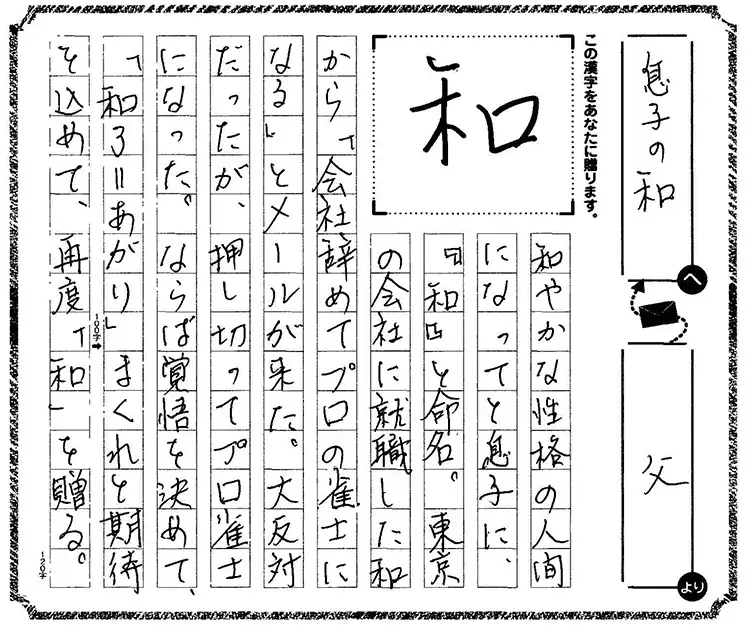 息子の和
へ
父
より
この漢字をあなたに贈ります。
和
和やかな性格の人間
になってと息子に、
『和』と命名。東京
の会社に就職した和
から「会社辞めてプロの雀士に
なる」とメールが来た。大反対
だったが、押し切ってプロ雀士
になった。ならば覚悟を決めて、
「和る=あがり」まくれと期待
100字➡
を込めて、再度「和」を贈る。
120字